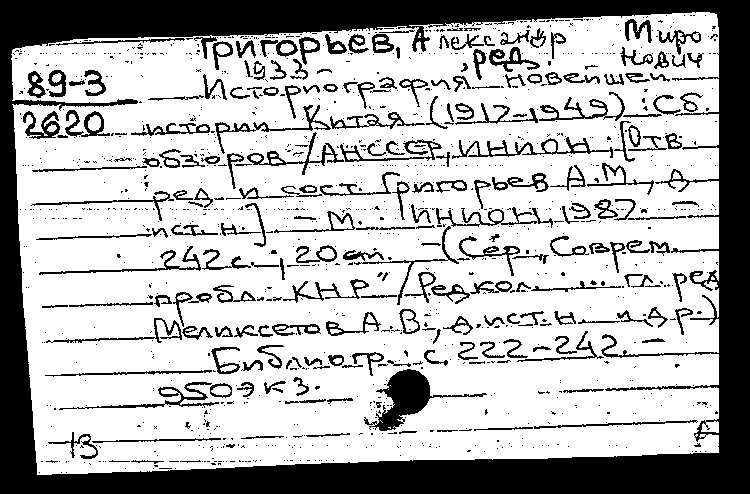 Григорьев, Александр Миро
1933- , ред. нович
89-3 Историография новейшей
2620 истории Китая (1917-1949) : Сб.
обзоров / АН СССР, ИНИОН ; [Отв.
ред. и сост. Григорьев А.М., д.
ист. н.] - М. : ИНИОН, 1987. -
242 с. ; 20 см. - (Сер. „Соврем.
пробл. КНР" / Редкол. : ... гл. ред
Меликсетов А.В., д.ист.н. и др.)
Библиогр. : с. 222-242. -
950 экз.
13